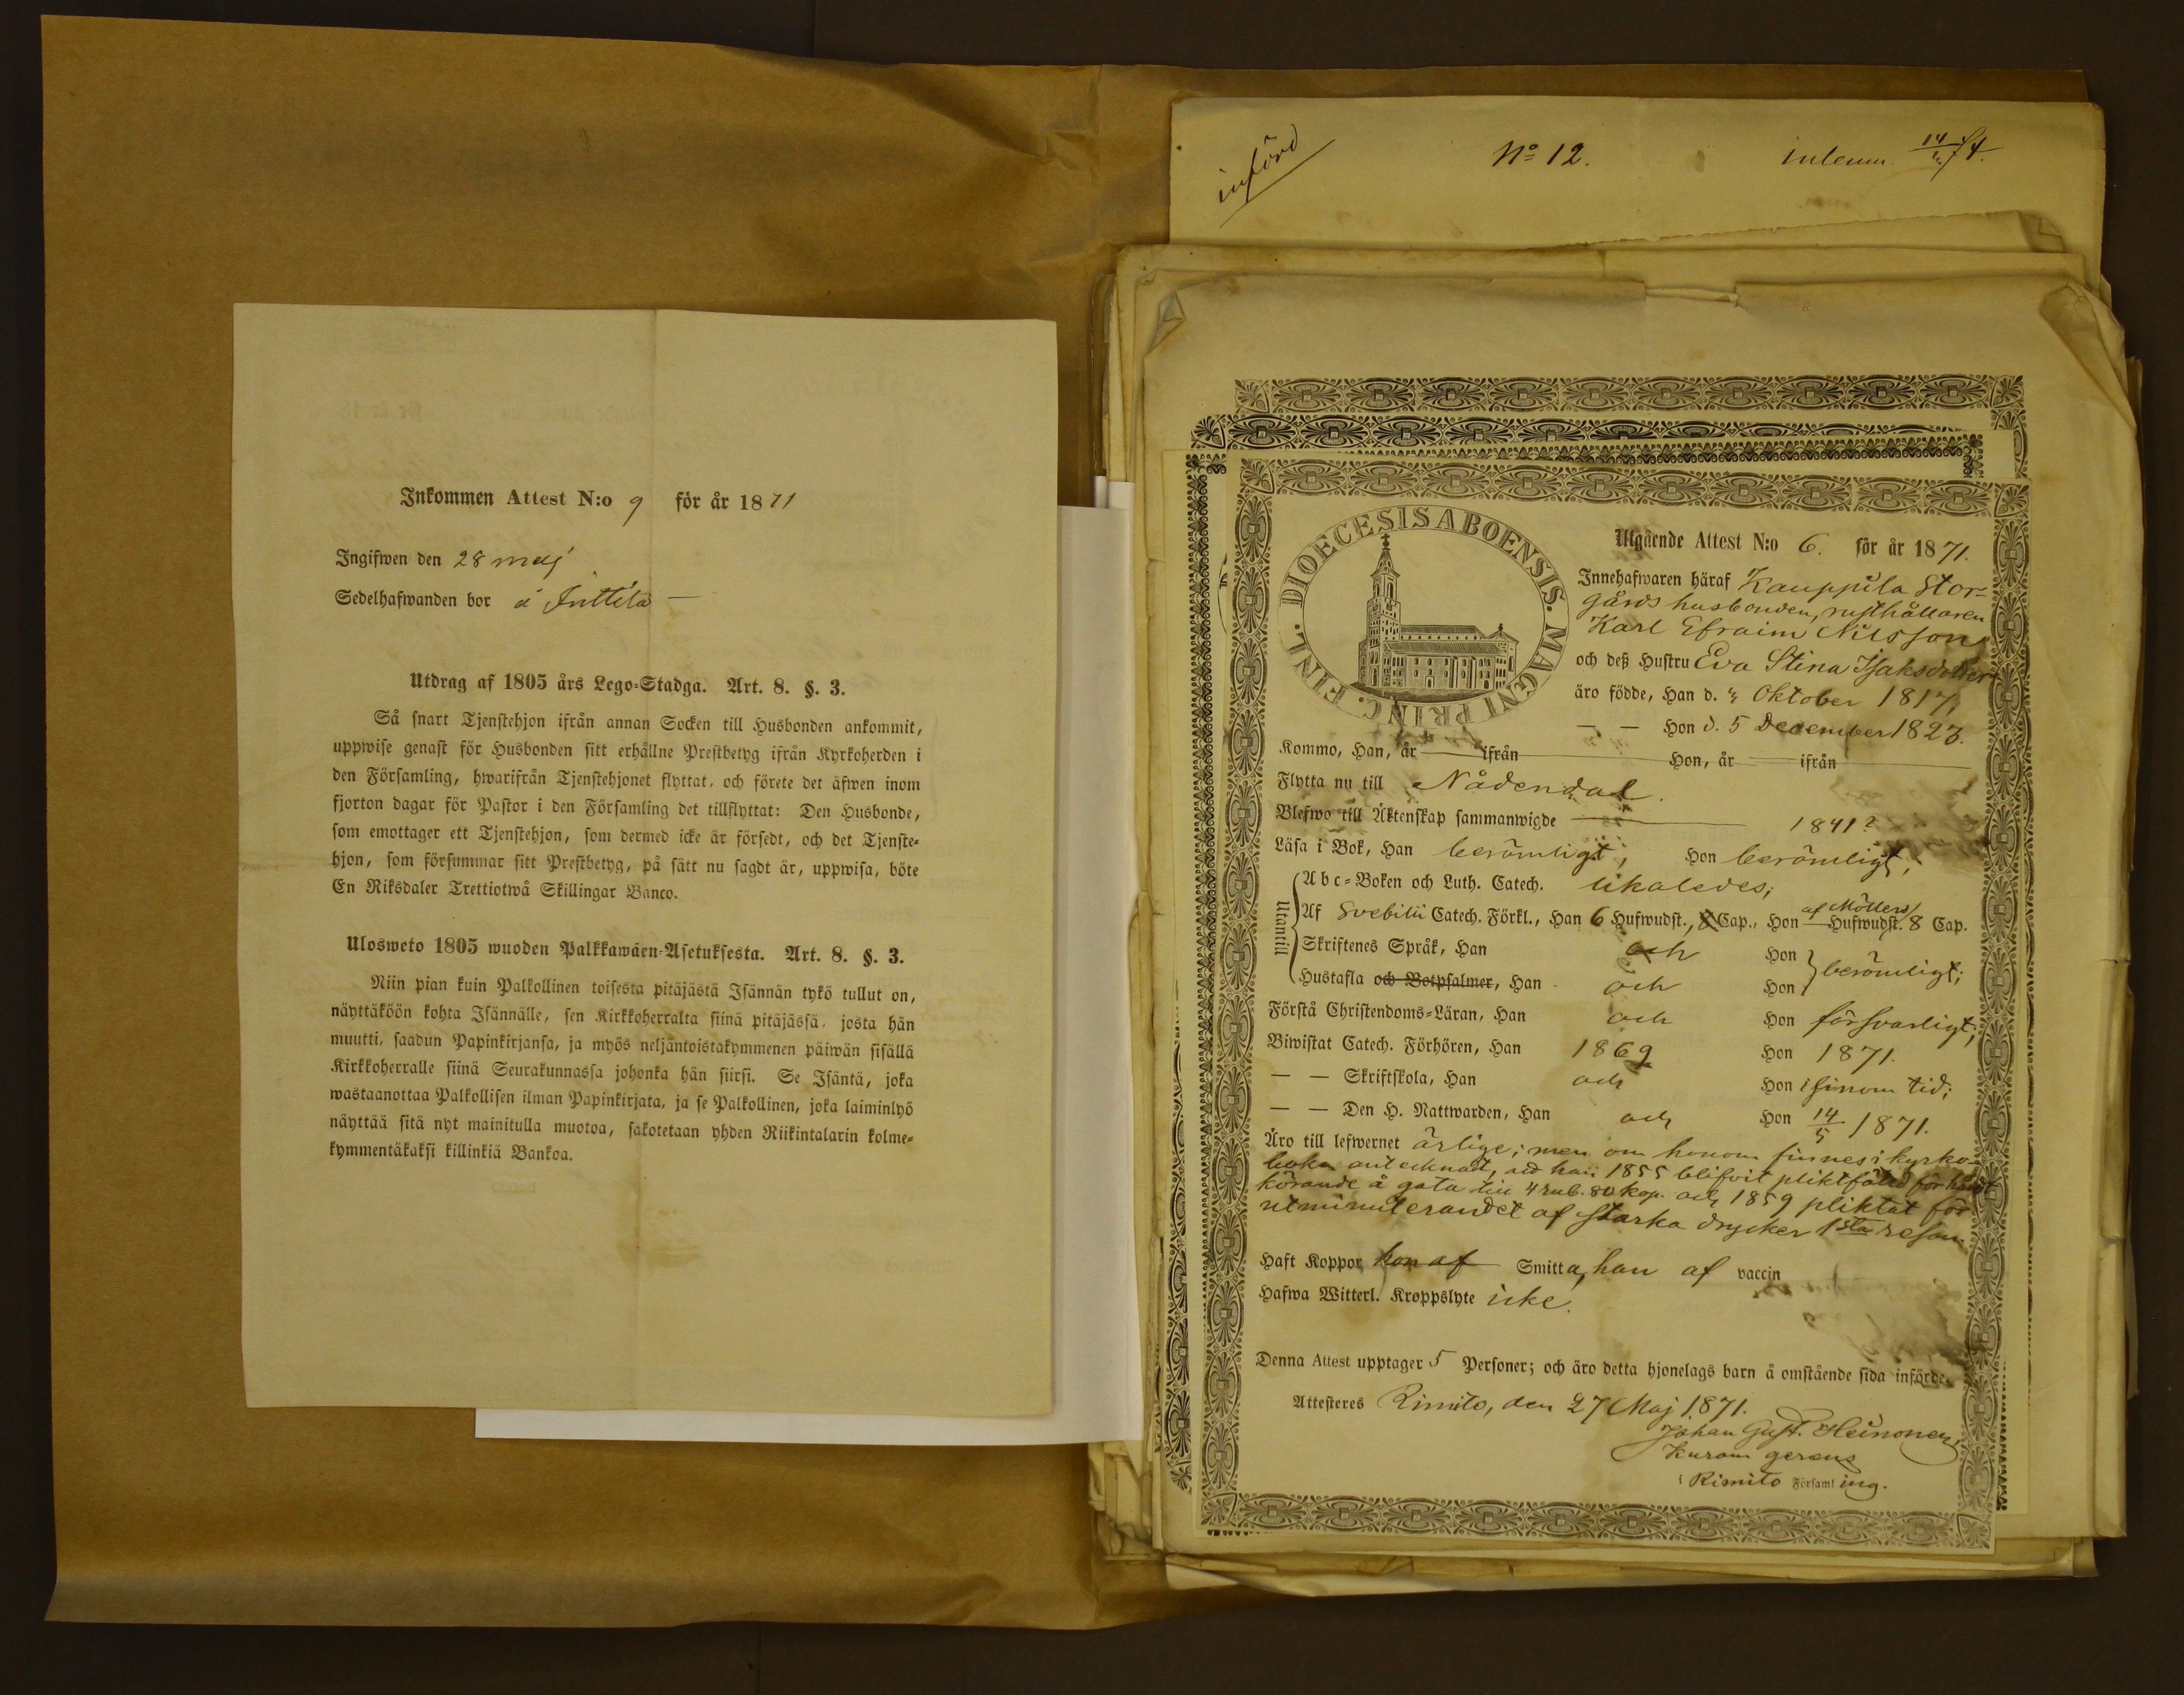 Inkommen Attest N:o 9 för år 1871
Ingifwen den 28 maj
Sedelhafwanden bor å Inttila
Utdrag af 1805 års Lego-Stadga. Art. 8. §. 3.
Så snart Tjenstehjon ifrån annan Socken till Husbonden ankommit,
uppwise genast för Husbonden sitt erhållne Prestbetyg ifrån Kyrkoherden i
den Församling, hwarifrån Tjenstehjonet flyttat, och förete det äfwen inom
fjorton dagar för Pastor i den Församling det tillflyttat: Den Husbonde,
som emottager ett Tjenstehjon, som dermed icke är försedt, och det Tjenste-
hjon, som försummar sitt Prestbetyg, på sätt nu sagdt är, uppwisa, böte
En Riksdaler Trettiotwå Skillingar Banco.
Ulosweto 1805 wuoden Palkkawäen-Asetuksesta. Art. 8. §. 3.
Niin pian kuin Palkollinen toisesta pitäjästä Isännän tykö tullut on,
näyttäköön kohta Isännälle, sen Kirkkoherralta siinä pitäjässä, josta hän
muutti, saadun Papinkirjansa, ja myös neljäntoistakymmenen päiwän sisällä
Kirkkoherralle siinä Seurakunnassa johonka hän siirsi. Se Isäntä, joka
wastaanottaa Palkollisen ilman Papinkirjata, ja se Palkollinen, joka laiminlyö
näyttää sitä nyt mainitulla muotoa, sakotetaan yhden Riikintalarin kolme-
kymmentäkaksi killinkiä Bankoa.
införd
No 12.
inlemn. 14/ 74.
DIOECESIS ABOENSIS. MAGNI PRINC. FINL.
Utgående Attest N:o 6. för år 1871.
Innehafwaren häraf Kauppila Stor-
gårds husbonden, rusthållaren
Karl Efraim Nilsson
och deß Hustru Eva Stina Isaksdotter
äro födde, Han d. 4 Oktober 1817,
— — Hon d. 5 December 1823.
Kommo, Han, år — ifrån — Hon, år — ifrån —
Flytta nu till Nådendal.
Blefwo till Äktenskap sammanwigde — 1841?
Läsa i Bok, Han berömligt, Hon berömligt,
Utantill
Abc-Boken och Luth. Catech. likaledes;
Af Svebilii Catech. Förkl., Han 6 Hufwudst., 8 Cap., Hon af Möllers Hufwudst. 8 Cap.
Skriftenes Språk, Han och Hon
Hustafla och Botpsalmer, Han och Hon berömligt;
Förstå Christendoms-Läran, Han och Hon försvarligt;
Biwistat Catech. Förhören, Han 1869 Hon 1871.
— — Skriftskola, Han och Hon i sinom tid;
— — Den H. Nattwarden, Han och Hon 14/5 1871.
Äro till lefwernet ärlige; men om honom finnes i kyrko-
boken antecknadt, att han 1855 blifvit pliktfälld för hårdt
körande å gata till 4 rub. 80 kop. och 1859 pliktat för
utminuterandet af starka drycker 1sta resan.
Haft Koppor hon af Smitta, han af vaccin
Hafwa Witterl. Kroppslyte icke.
Denna Attest upptager 5 Personer; och äro detta hjonelags barn å omstående sida införde.
Attesteres Rimito, den 27 Maj 1871.
Johan Gust. Heinonen,
Kuram gerens
i Rimito Församling.